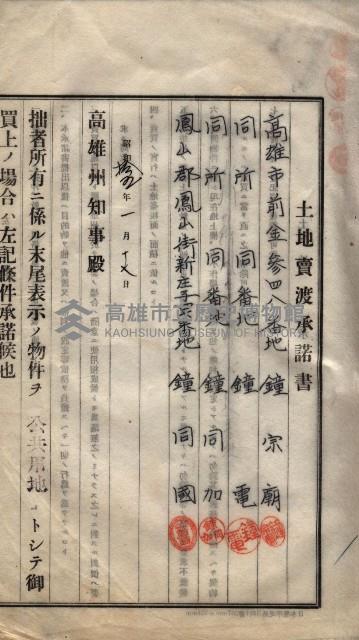 土地賣渡承諾書
高雄市前金參四八番地 鐘宗廟
同所同番地 鐘電
同所同番地 鐘同加
鳳山郡鳳山街新庄子 番地 鐘同國
昭和 年一月 日
高雄州知事殿
拙者所有ニ係ル末尾表示ノ物件ヲ公共用地トシテ御
買上ノ場合ハ左記條件承諾候也
高雄市立歷史博物館
KAOHSIUNG MUSEUM OF HISTORY